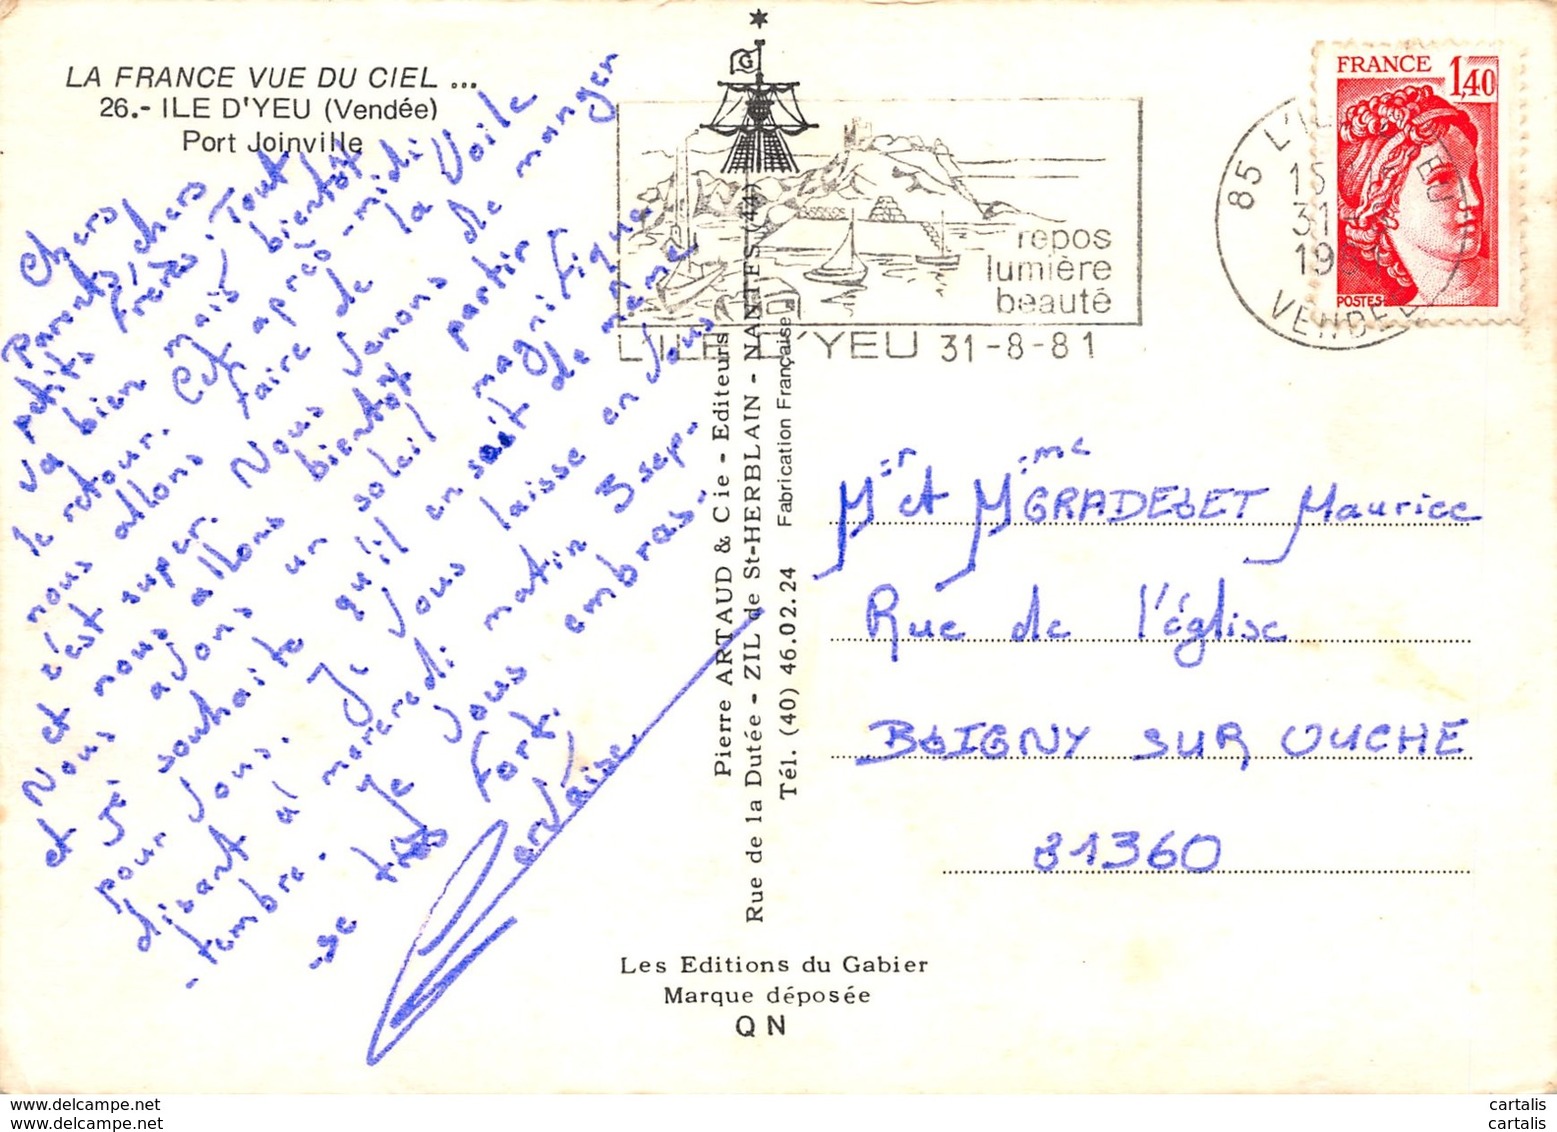 LA FRANCE VUE DU CIEL ...
26.- ILE D'YEU (Vendée)
Port Joinville
Chers
Parents, chers
petits frères. Tout
va bien mais bientôt
le retour. Cet après-midi
nous allons faire de la Voile
c'est super. Nous venons de manger
et nous allons bientôt partir
Nous avons un soleil magnifique
et je souhaite qu'il en soit de même
pour vous. Je vous laisse en vous
disant à mercredi matin 3 sep-
-tembre. Je vous embras-
-se très fort.
Gervaise.
G
repos
lumière
beauté
L'ILE D'YEU 31-8-81
85 L'ILE D'YEU
15
31
1981
VENDEE
FRANCE 1,40
POSTES
Pierre ARTAUD & Cie - Editeurs
Rue de la Dutée - ZIL de St-HERBLAIN - NANTES (44)
Tél. (40) 46.02.24 Fabrication Française
Mr et Mme GRADELET Maurice
Rue de l'église
BLIGNY SUR OUCHE
21360
Les Editions du Gabier
Marque déposée
QN
www.delcampe.net
cartalis
cartalis